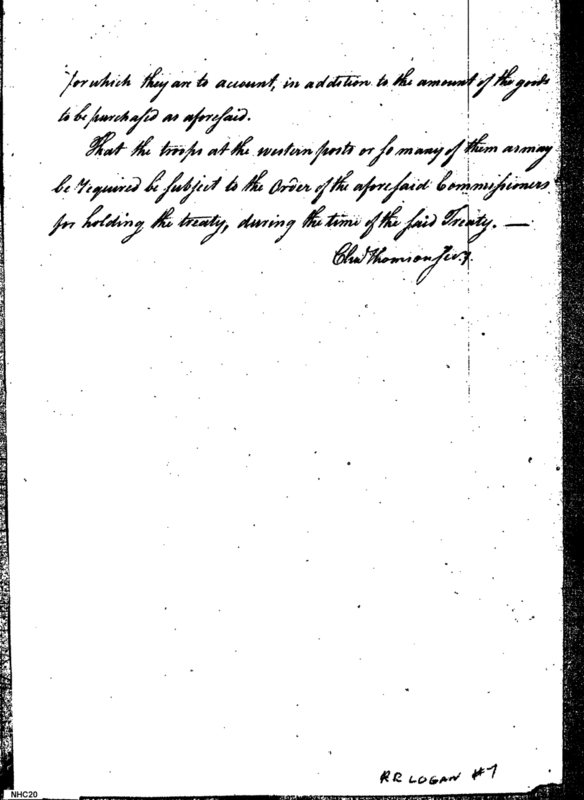 for which they are to account, in addition to the amount of the goods
to be purchased as aforesaid.
That the troops at the western posts or so many of them as may
be required be subject to the Order of the aforesaid Commissioners
for holding the treaty, during the time of the said Treaty. —
Chas Thomson Secy.
RR LOGAN #7
NHC20